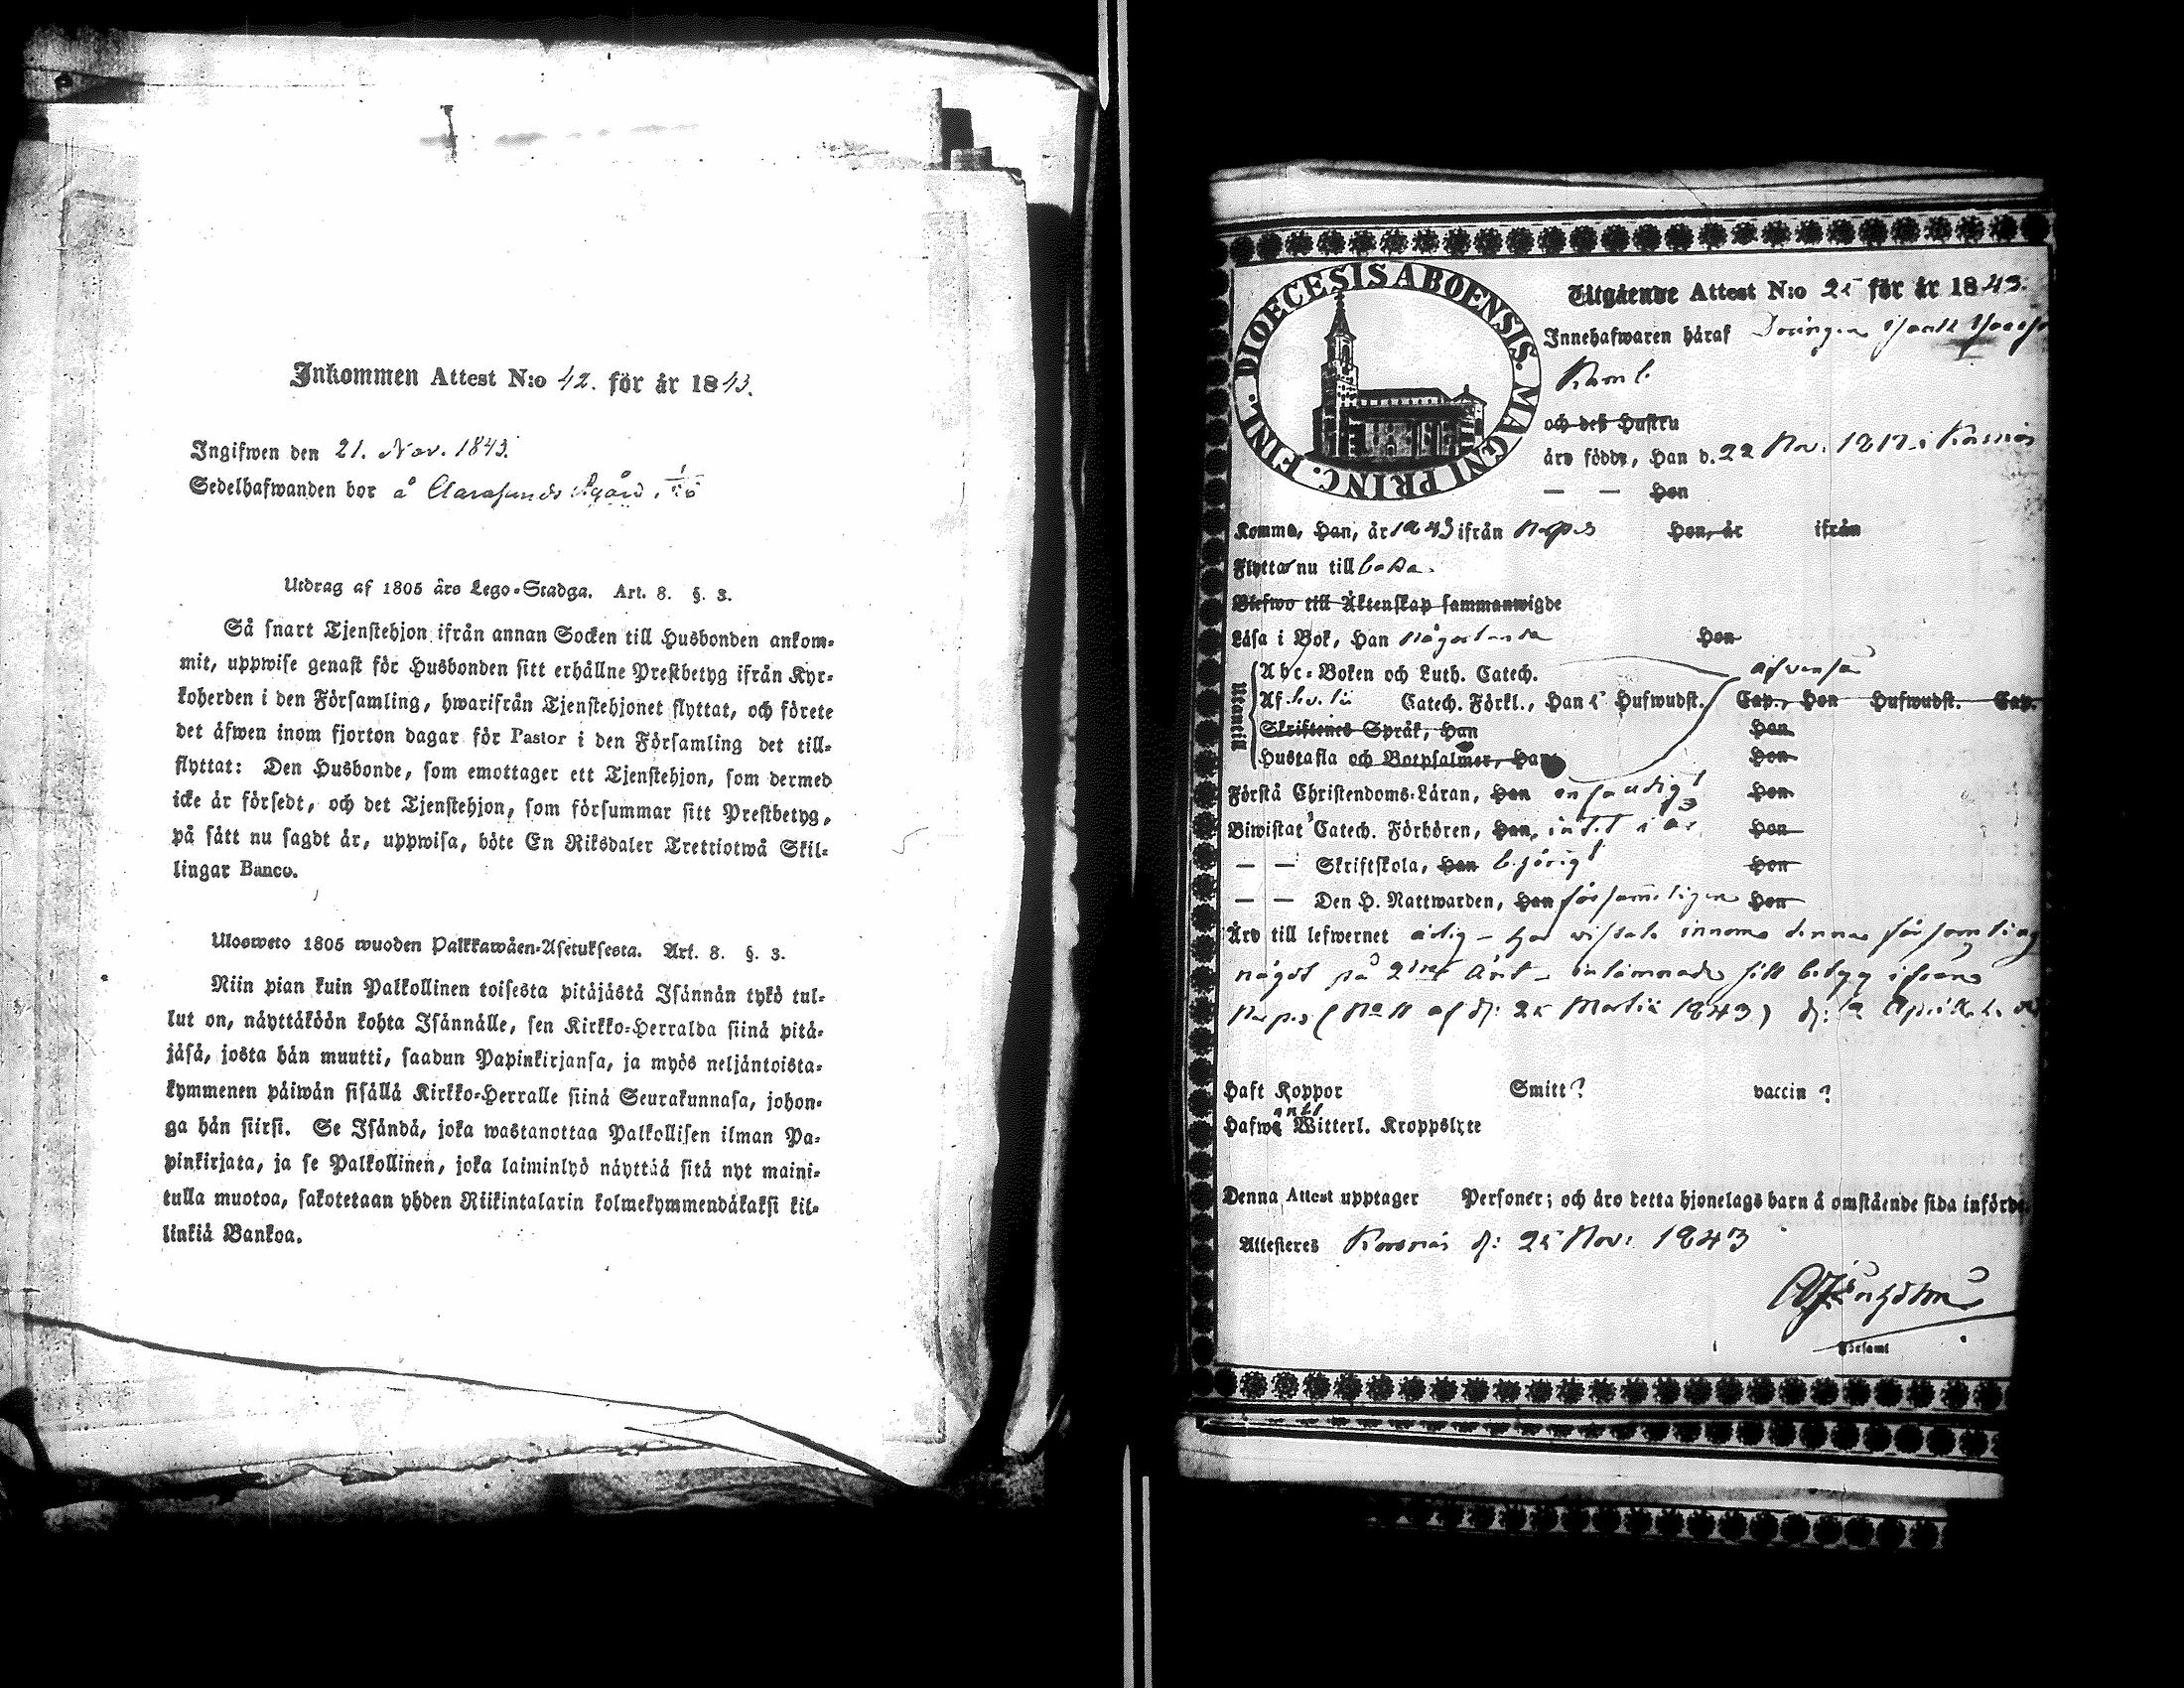 Inkommen Attest N:o 42. för år 1843.
Ingifwen den 21. Nov. 1843.
Sedelhafwanden bor å
Utdrag af 1805 års Lego-Stadga. Art. 8. §. 3.
Så snart Tjenstehjon ifrån annan Socken till Husbonden ankom-
mit, uppwise genast för Husbonden sitt erhållne Prestbetyg ifrån Kyr-
koherden i den Församling, hwarifrån Tjenstehjonet flyttat, och förete
det äfwen inom fjorton dagar för Pastor i den Församling det till-
flyttat: Den Husbonde, som emottager ett Tjenstehjon, som dermed
icke är försedt, och det Tjenstehjon, som försummar sitt Prestbetyg,
på sätt nu sagdt är, uppwisa, böte En Riksdaler Trettiotwå Skil-
lingar Banco.
Ulosweto 1805 wuoden Palkkawäen-Asetuksesta. Art. 8. §. 3.
Niin pian kuin Palkollinen toisesta pitäjästä Isännän tykö tul-
lut on, näyttäköön kohta Isännälle, sen Kirkko-Herralda siinä pitä-
jäsä, josta hän muutti, saadun Papinkirjansa, ja myös neljäntoista-
kymmenen päiwän sisällä Kirkko-Herralle siinä Seurakunnasa, johon-
ga hän siirsi. Se Isändä, joka wastanottaa Palkollisen ilman Pa-
pinkirjata, ja se Palkollinen, joka laiminlyö näyttää sitä nyt maini-
tulla muotoa, sakotetaan yhden Riikintalarin kolmekymmendäkaksi kil-
linkiä Bankoa.
DIOECESIS ABOENSIS. MAGNI PRINC. FINL.
Utgående Attest N:o 25 för år 1843.
Innehafwaren häraf Drängen
och deß Hustru
äro födde, Han d. 22 Nov. 1817 i
— — Hon
Komme, Han, år 1843 ifrån Hon, år ifrån
Flyttar nu till
Blefwo till Äktenskap sammanwigde
Läsa i Bok, Han någorlunda Hon
Utantill
Abc-Boken och Luth. Catech.
Af Catech. Förkl., Han 5 Hufwudst. Cap., Hon Hufwudst. Cap.
Skriftenes Språk, Han Hon
Hustafla och Botpsalmer, Han Hon
Förstå Christendoms-Läran, Han enfaldigt Hon
Biwistat Catech. Förhören, Han, intet i år Hon
— — Skriftskola, Han behörigt Hon
— — Den H. Nattwarden, Han Hon
Äro till lefwernet ärlig – har vistats innom denna församling
något på 2dra året – inlämnade sitt betyg ifrån
af d: 25 Martii 1843) d: 2 April
Haft Koppor Smitt? vaccin?
Hafwa Witterl. Kroppslyte
Denna Attest upptager Personer; och äro detta hjonelags barn å omstående sida införde
Attesteres d: 25 Nov: 1843